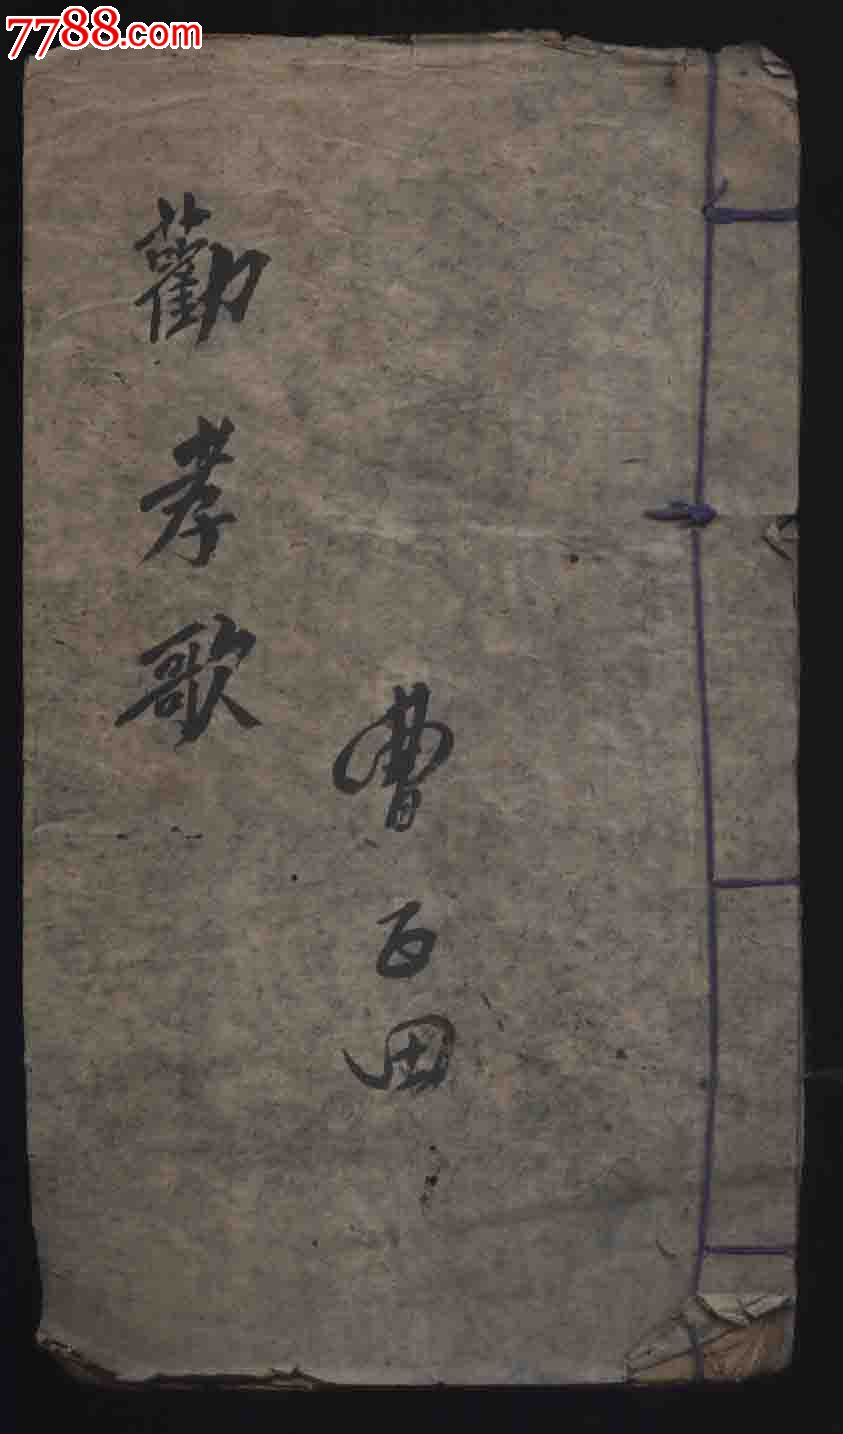 7788.com
勸孝歌
曹百田